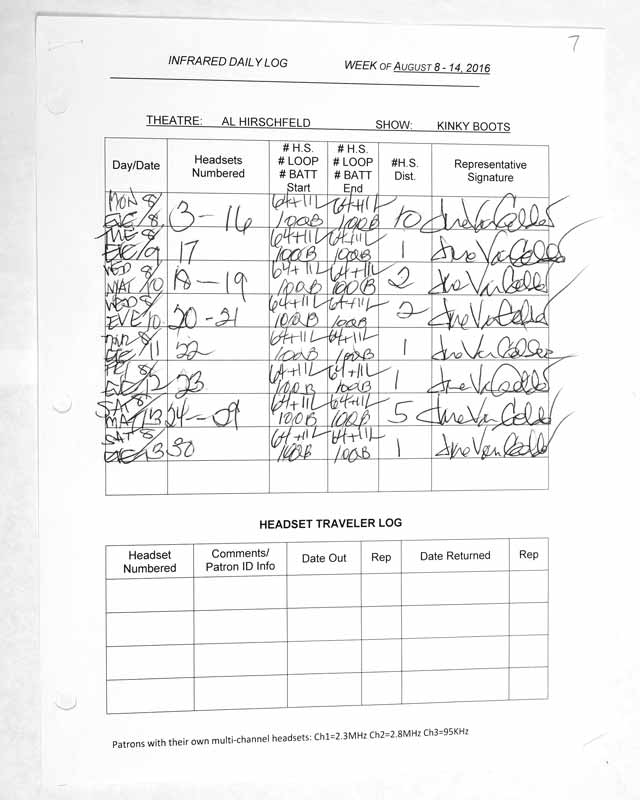 7
INFRARED DAILY LOG WEEK OF AUGUST 8 - 14, 2016
THEATRE: AL HIRSCHFELD SHOW: KINKY BOOTS
Day/Date Headsets Numbered # H.S. # LOOP # BATT Start # H.S. # LOOP # BATT End #H.S. Dist. Representative Signature
MON 8/ EVE/8 3-16 64+11L 100B 64+11L 100B 10
TUE 8/ EVE/9 17 64+11L 100B 64+11L 100B 1
WED 8/ MAT/10 18-19 64+11L 100B 64+11L 100B 2
WED 8/ EVE/10 20-21 64+11L 100B 64+11L 100B 2
8/ EVE/11 22 64+11L 100B 64+11L 100B 1
8/ EVE/12 23 64+11L 100B 64+11L 100B 1
SAT 8/ MAT/13 24-09 64+11L 100B 64+11L 100B 5
SAT 8/ EVE/13 30 64+11L 100B 64+11L 100B 1
HEADSET TRAVELER LOG
Headset Numbered Comments/ Patron ID Info Date Out Rep Date Returned Rep
Patrons with their own multi-channel headsets: Ch1=2.3MHz Ch2=2.8MHz Ch3=95KHz